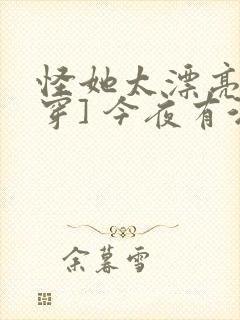 怪她太漂亮
穿]今夜有
余暮雪